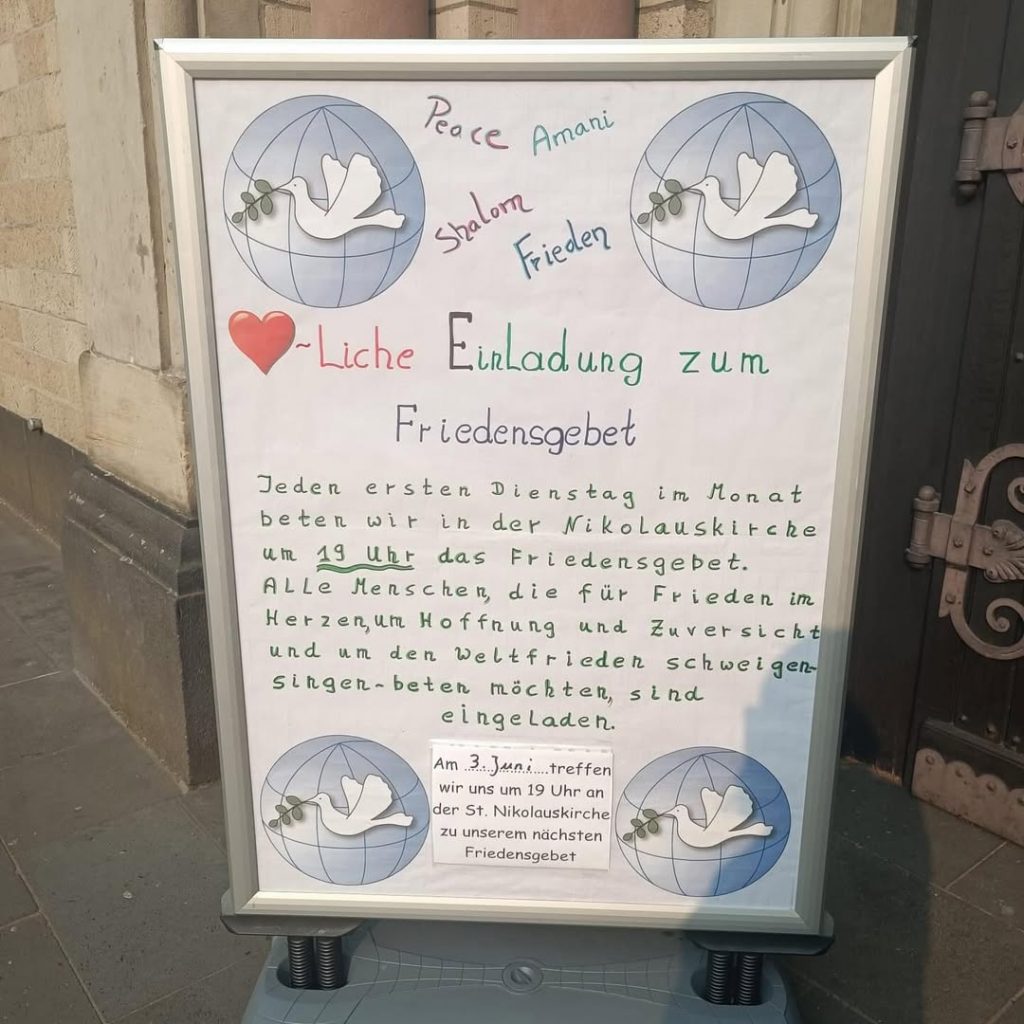 Peace Amani
Shalom
Frieden
~Liche Einladung zum
Friedensgebet
Jeden ersten Dienstag im Monat
beten wir in der Nikolauskirche
um 19 Uhr das Friedensgebet.
Alle Menschen, die für Frieden im
Herzen, um Hoffnung und Zuversicht
und um den Weltfrieden schweigen-
singen-beten möchten, sind
eingeladen.
Am 3. Juni treffen
wir uns um 19 Uhr an
der St. Nikolauskirche
zu unserem nächsten
Friedensgebet